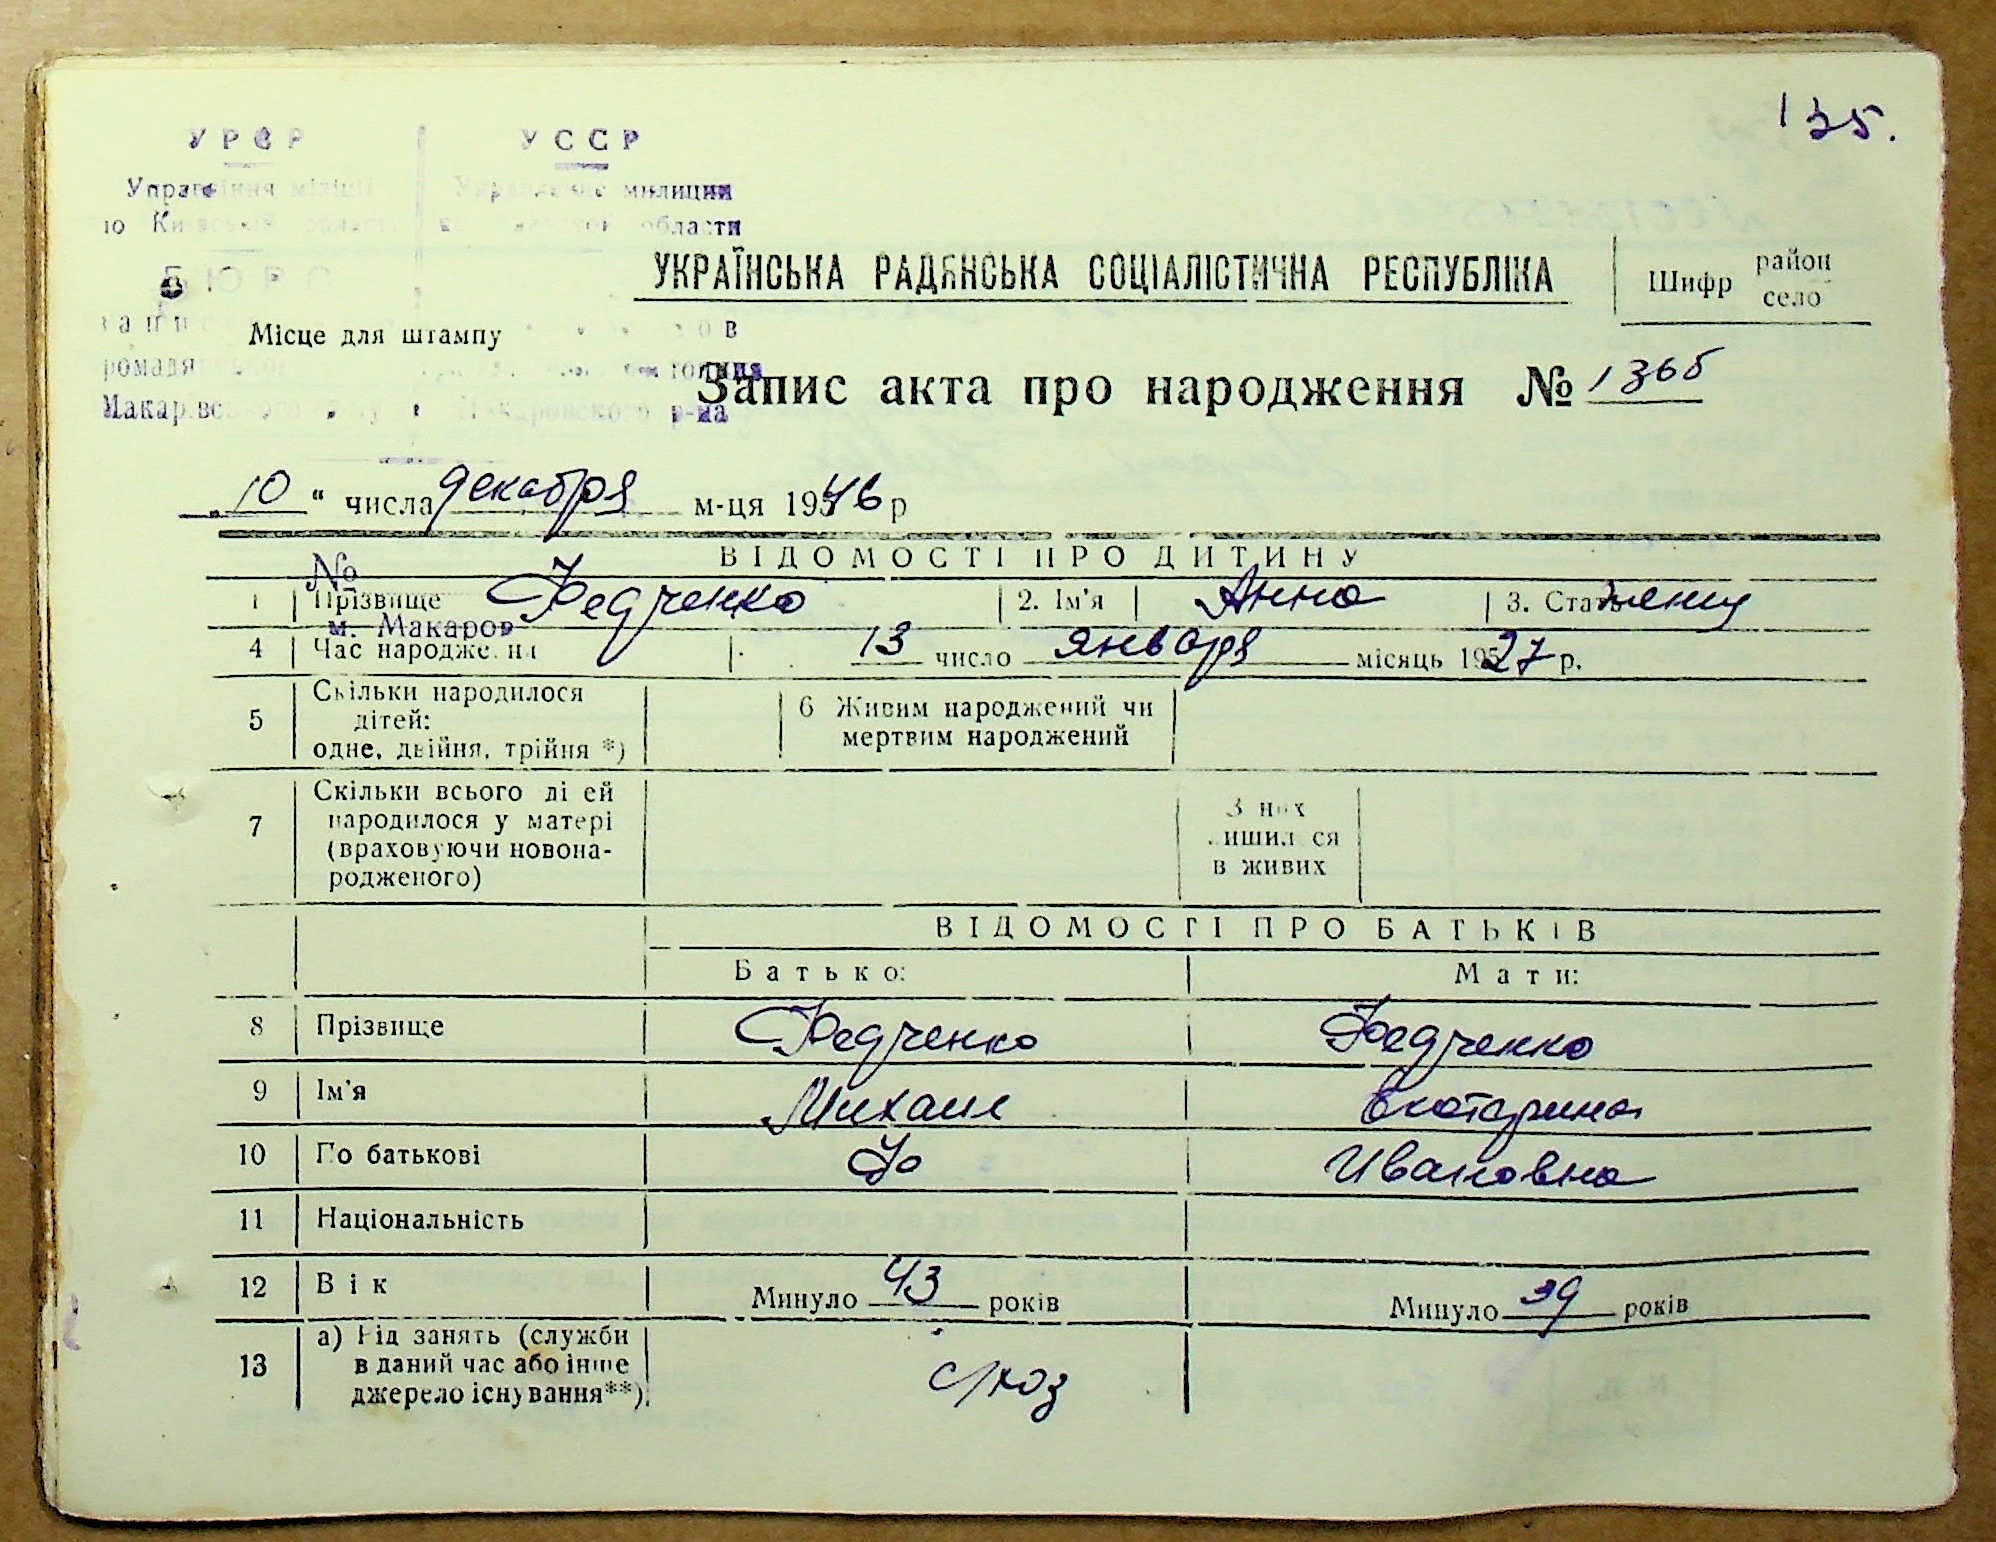 135.
УРСР УССР
Управління міліції Управление милиции
по Київській області области
БЮРО
УКРАЇНСЬКА РАДЯНСЬКА СОЦІАЛІСТИЧНА РЕСПУБЛІКА
Шифр район
село
Місце для штампу
Запис акта про народження № 1366
Макарівського р-ну Макаровского р-на
„10“ числа декабря м-ця 1946 р
ВІДОМОСТІ ПРО ДИТИНУ
№
1 Прізвище Федченко 2. Ім'я Анна 3. Стать женщ
м. Макаров
4 Час народження 13 число января місяць 1927 р.
5 Скільки народилося 6 Живим народжений чи
дітей: мертвим народжений
одне, двійня, трійня *)
7 Скільки всього дітей З них
народилося у матері лишилося
(враховуючи новона- в живих
родженого)
ВІДОМОСТІ ПРО БАТЬКІВ
Батько: Мати:
8 Прізвище Федченко Федченко
9 Ім'я Михаил Екатерина
10 По батькові Ивановна
11 Національність
12 Вік Минуло 43 років Минуло 39 років
13 а) Рід занять (служби
в даний час або інше
джерело існування**) с/хоз